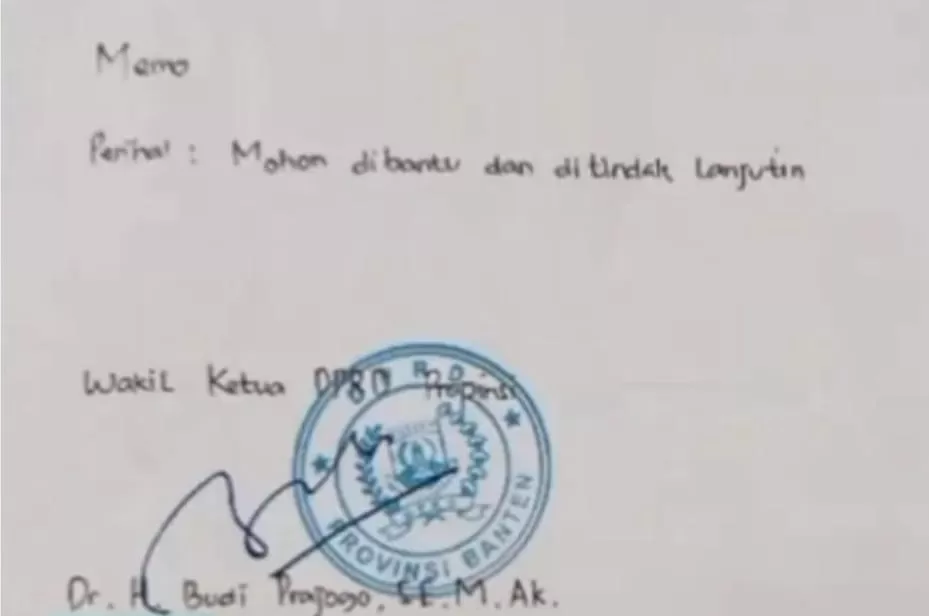 Memo
Perihal : Mohon dibantu dan ditindak lanjutin
Wakil Ketua DPRD Propinsi
DPRD
PROVINSI BANTEN
Dr. H. Budi Prajogo, SE.M.Ak.